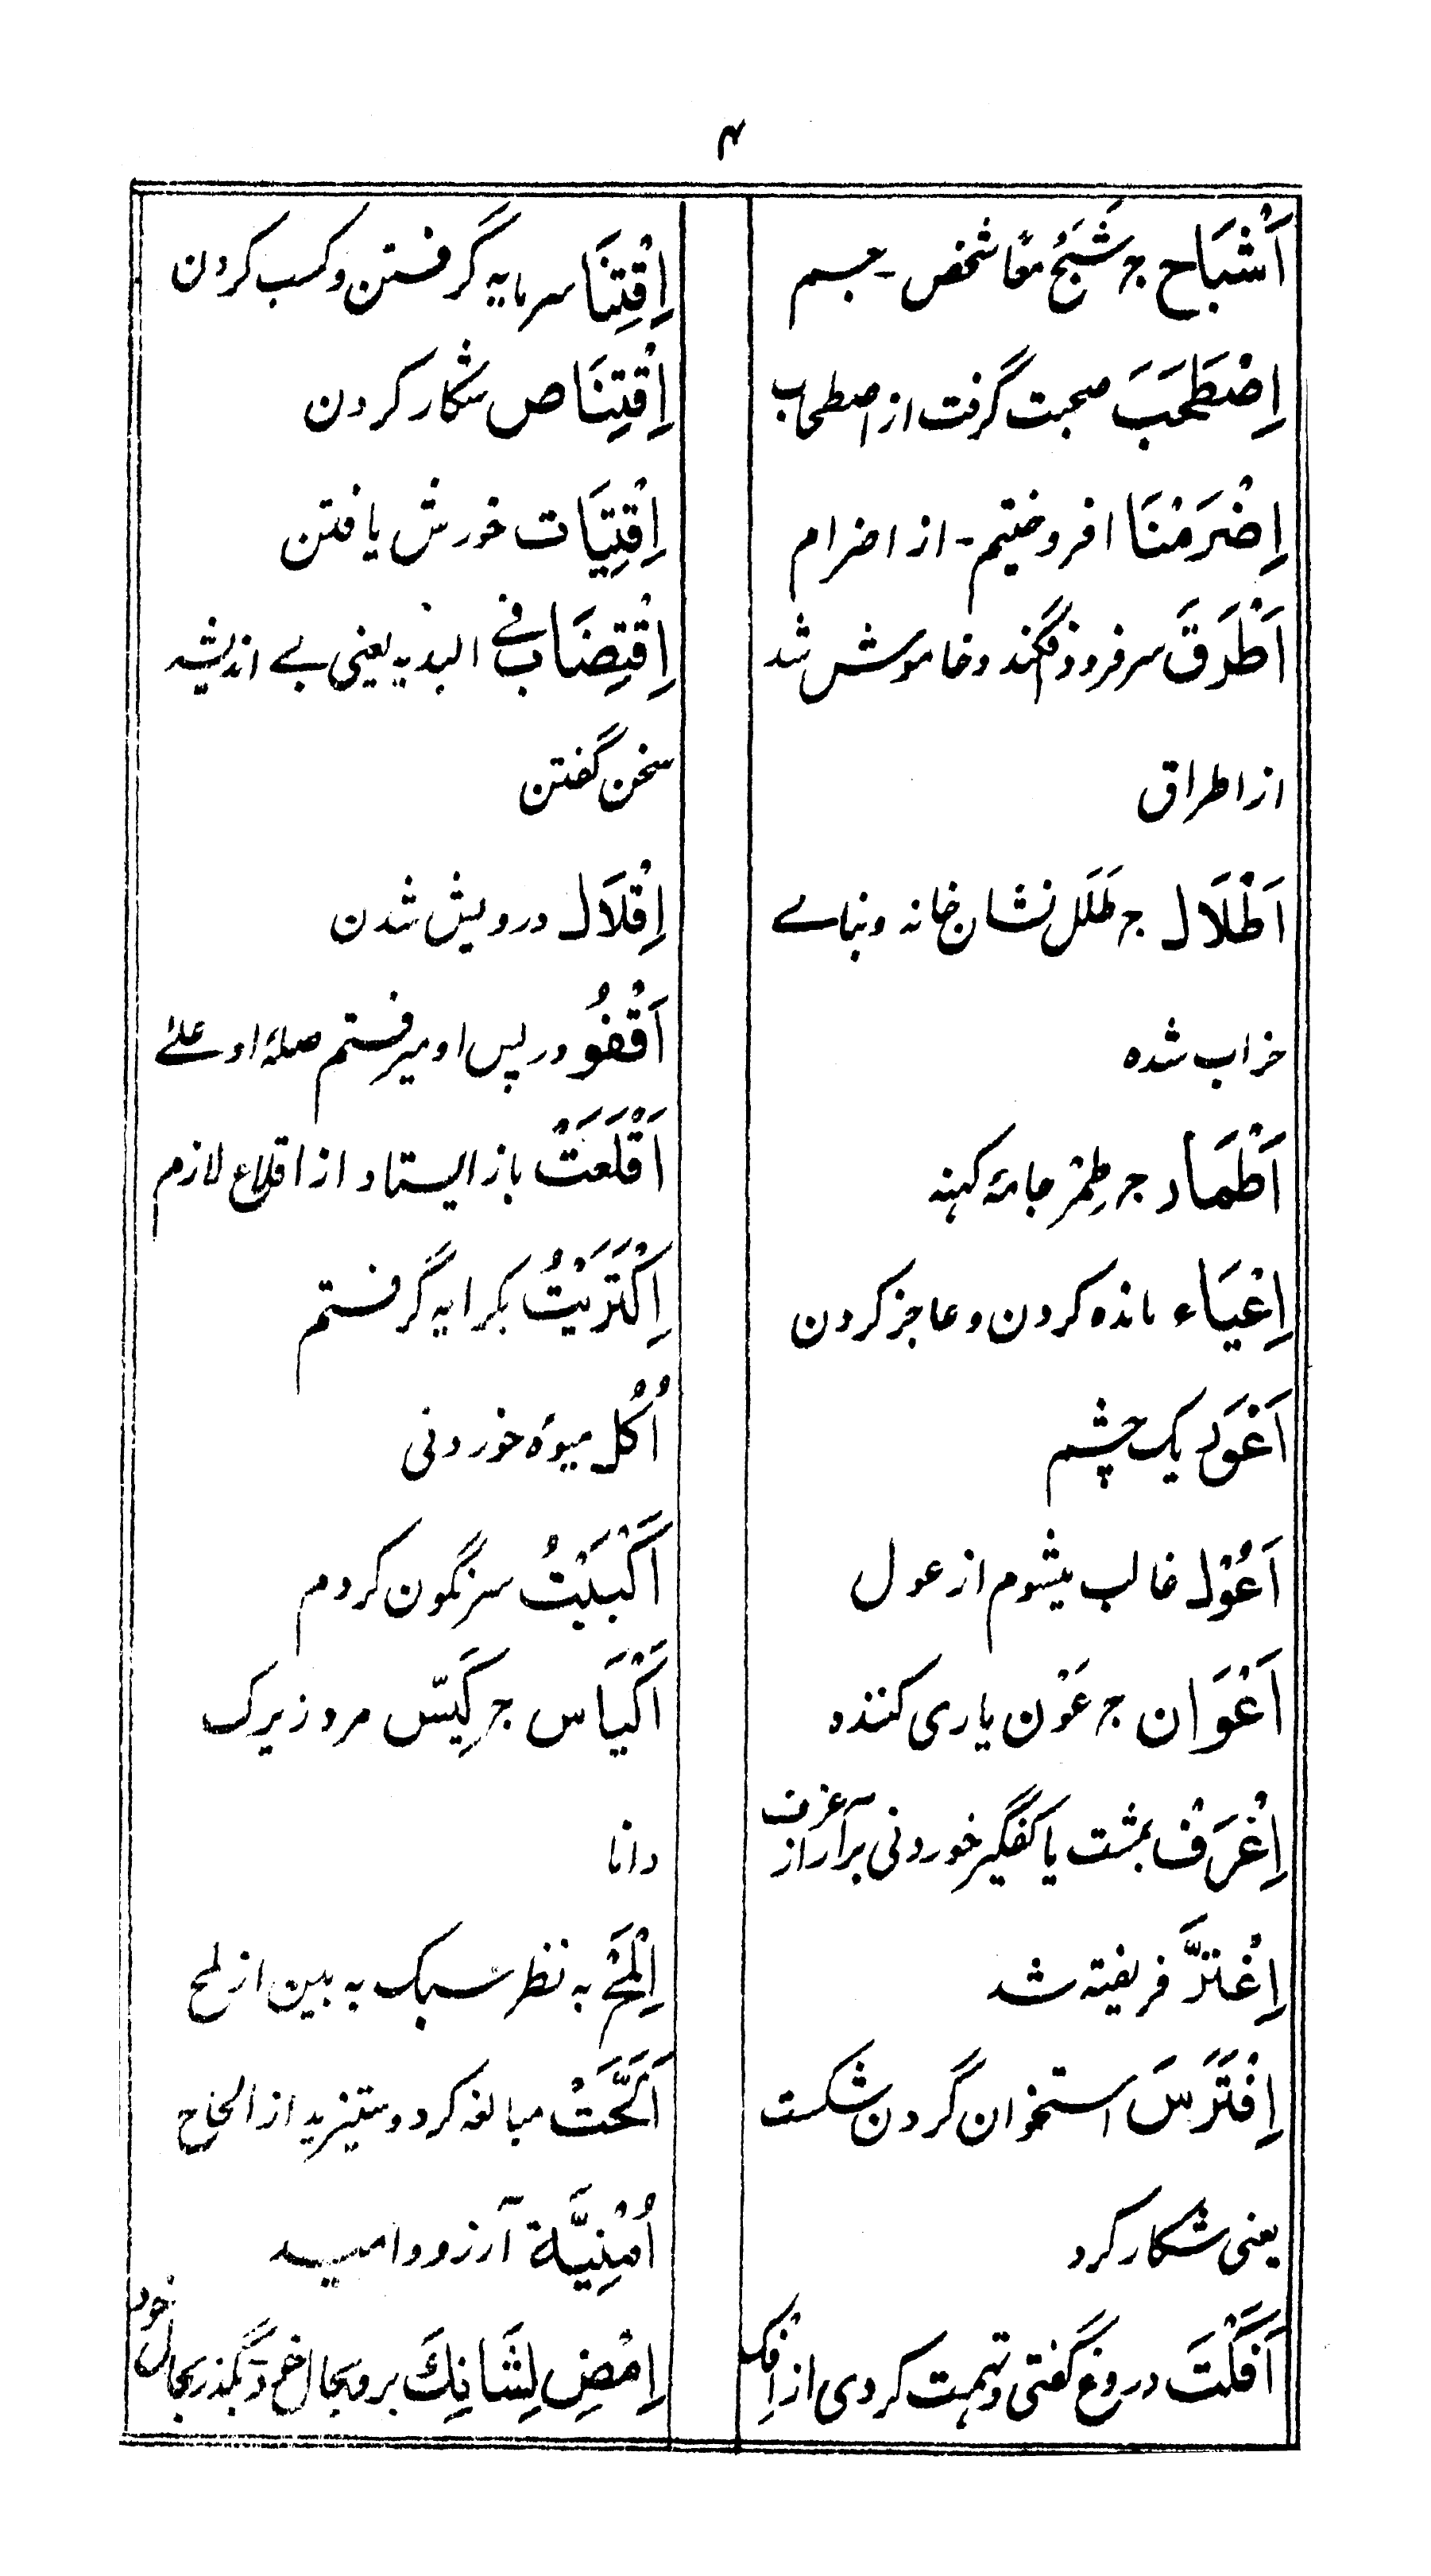 ۴
اَشْبَاح جـ شَبَحٌ معًا شخص - جسم
اِصْطَحَبَ صحبت گرفت از اصطحاب
اِضْرَمْنَا افروختیم - از اضرام
اَطْرَقَ سر فرود فگند و خاموش شد
از اطراق
اَطْلَال جـ طَلَل نشان خانہ و بناے
خراب شدہ
اَطْمَار جـ طِمْر جامۂ کہنہ
اِعْیَاء ماندہ کردن و عاجز کردن
اَعْوَر یک چشم
اَعُوْل غالب میشوم از عول
اَعْوَان جـ عَوْن یاری کنندہ
اِغْرَفْ بمشت یا کفگیر خوردنی برآر از غرف
اِغْتَرَّ فریفتہ شد
اِفْتَرَسَ استخوان گردن شکست
یعنی شکار کرد
اَفَكْتَ دروغ گفتی و تہمت کردی از اِفْک
اِقْتِنَا سرمایہ گرفتن و کسب کردن
اِقْتِنَاص شکار کردن
اِقْتِیَات خورش یافتن
اِقْتِضَاب فے البدیہ یعنی بے اندیشہ
سخن گفتن
اِقْلَال درویش شدن
اَقْفُو در پس او میرفتم صلۂ او علےٰ
اَقْلَعَتْ باز ایستاد از اقلاع لازم
اِکْتَرَیْتُ بکرایہ گرفتم
اُکُل میوۂ خوردنی
اَکْبَبْتُ سرنگون کردم
اَکْیَاس جـ کَیِّس مرد زیرک
دانا
اِلْمَحْ بہ نظر سبک بہ بین از لمح
اَلَحَّتْ مبالغہ کرد و ستیزید از الحاح
اُمْنِیَّة آرزو و امید
اِمْضِ لِشَانِكَ برو بحال خود و بگذر بحال خود